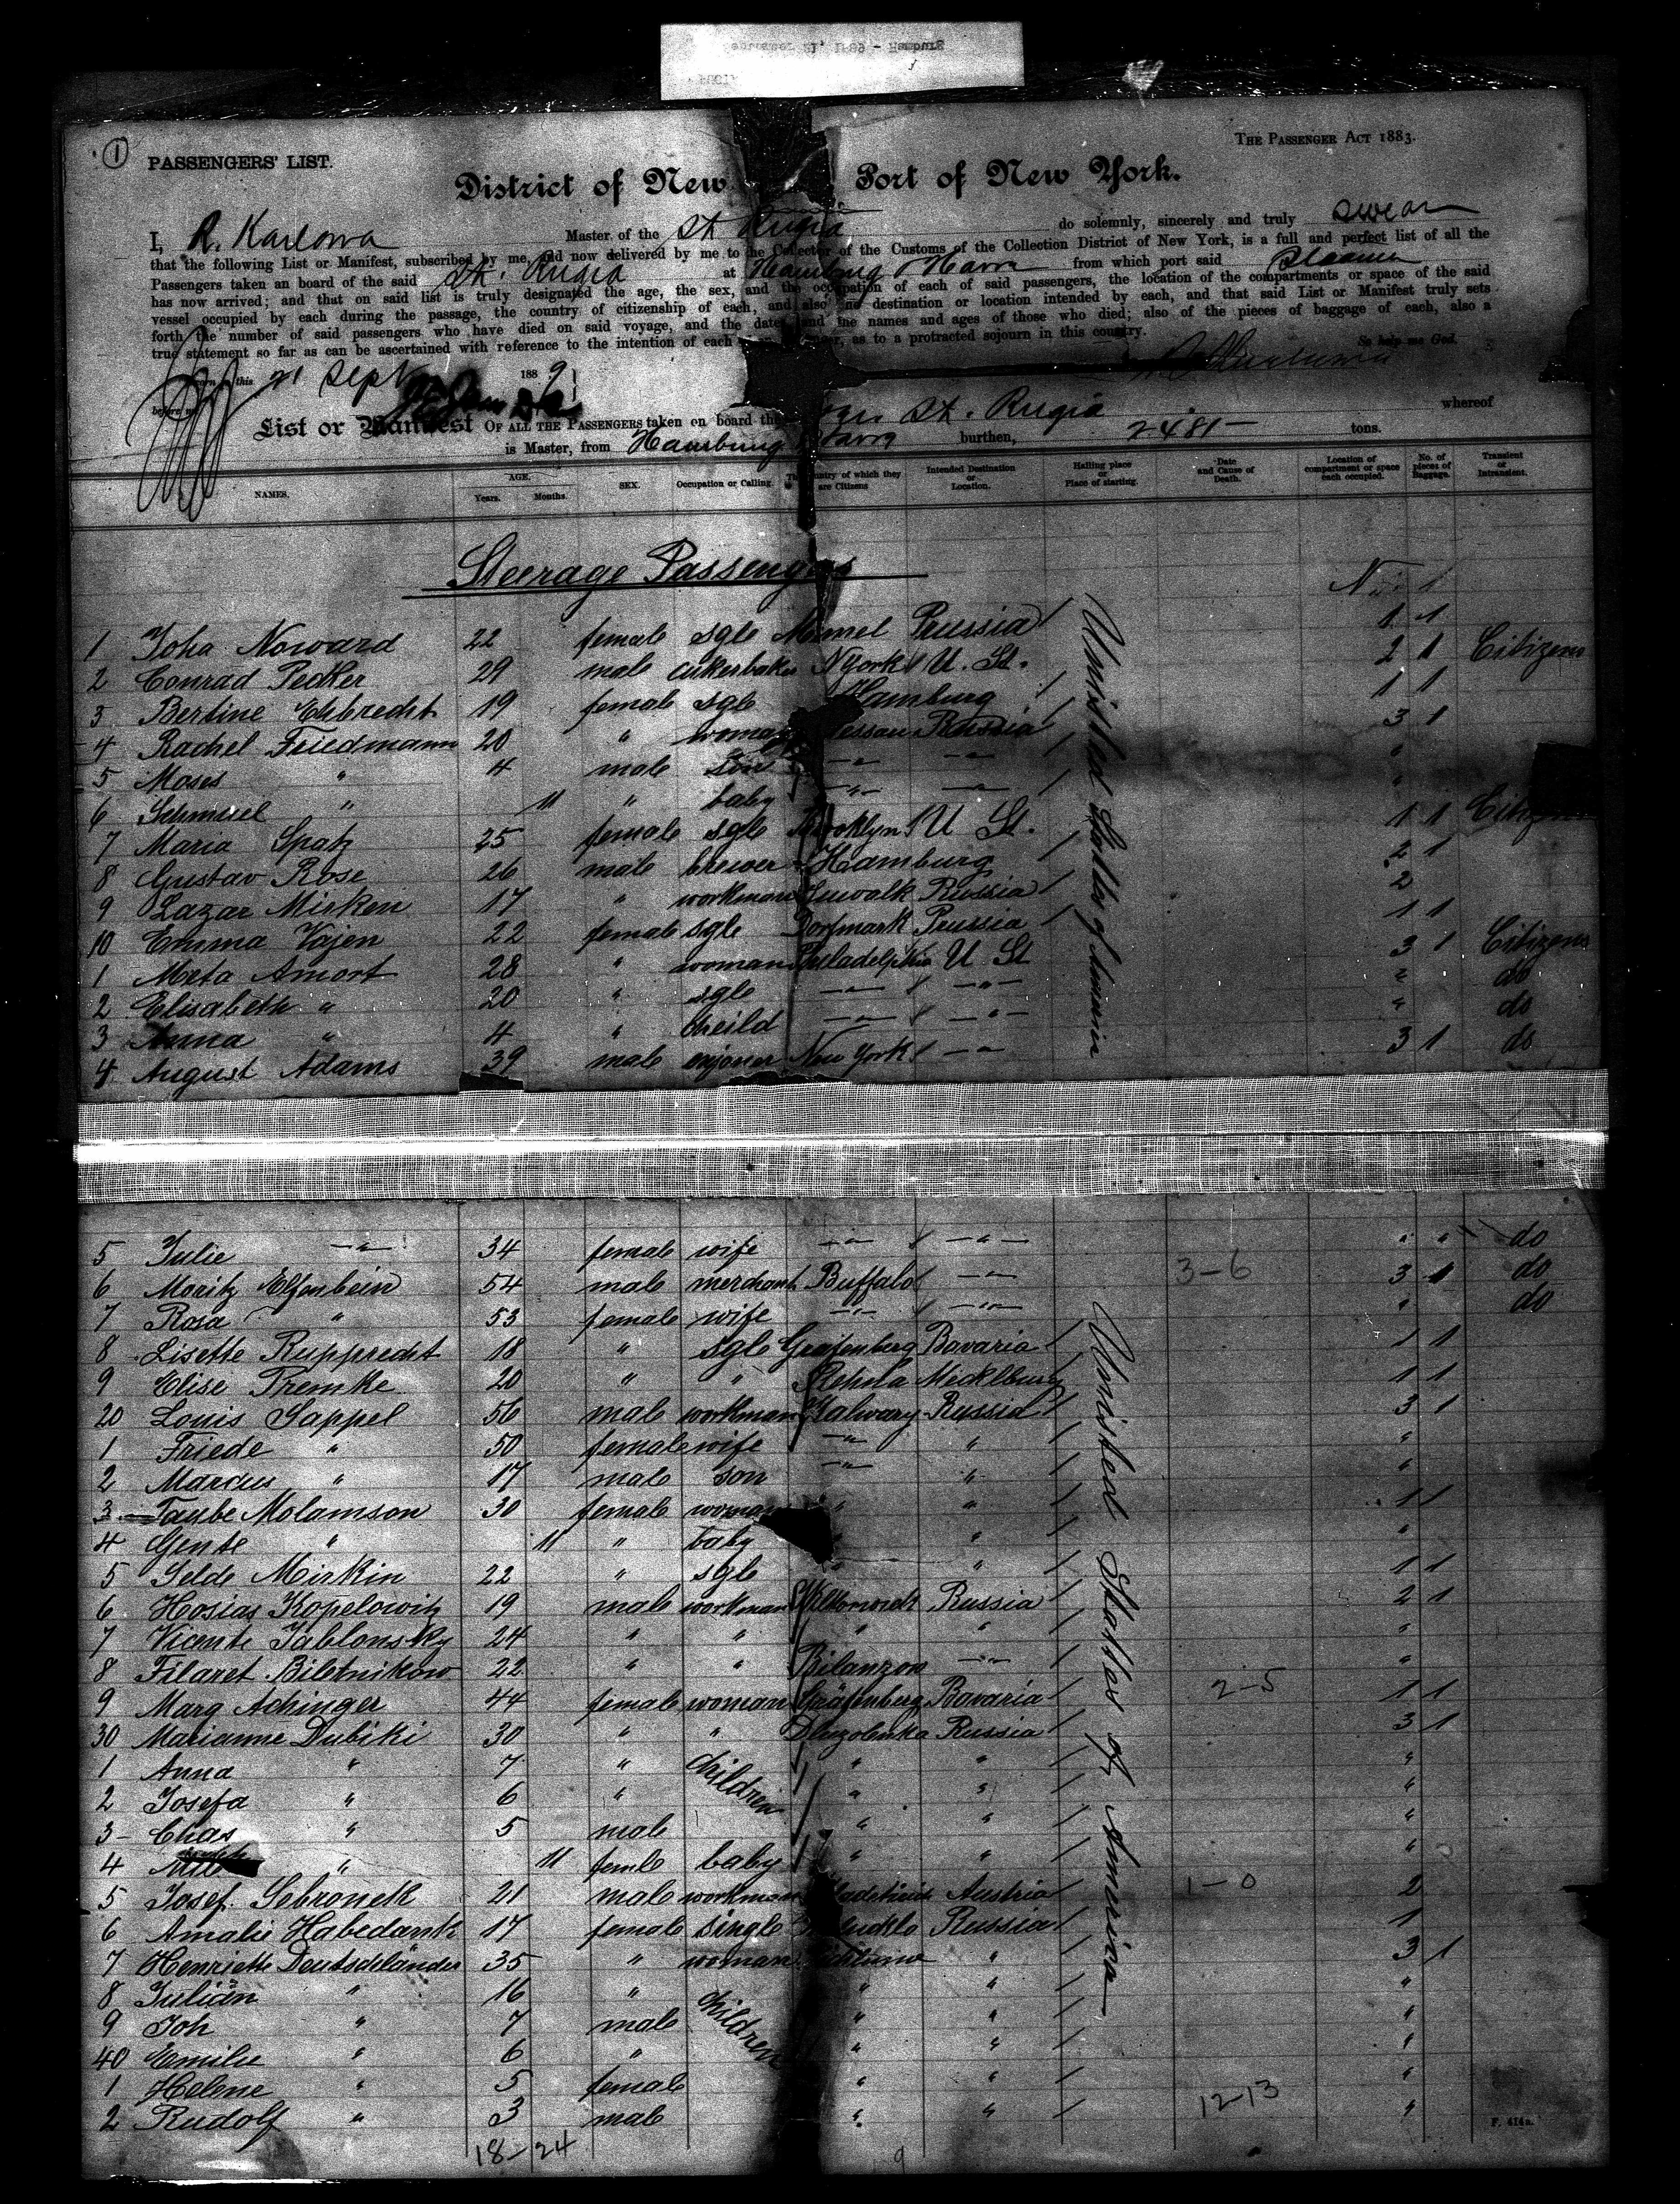 ① PASSENGERS' LIST.
THE PASSENGER ACT 1883.
District of New Port of New York.
I, R. Karlowa Master of the St Rugia do solemnly, sincerely and truly swear
that the following List or Manifest, subscribed by me, and now delivered by me to the Collector of the Customs of the Collection District of New York, is a full and perfect list of all the
Passengers taken on board of the said St. Rugia at Hamburg & Havre from which port said Steamer
has now arrived; and that on said list is truly designated the age, the sex, and the occupation of each of said passengers, the location of the compartments or space of the said
vessel occupied by each during the passage, the country of citizenship of each, and also the destination or location intended by each, and that said List or Manifest truly sets
forth the number of said passengers who have died on said voyage, and the dates and the names and ages of those who died; also of the pieces of baggage of each, also a
true statement so far as can be ascertained with reference to the intention of each as to a protracted sojourn in this country.
So help me God.
this 21 Sept 1889
before me
List or Manifest OF ALL THE PASSENGERS taken on board the St. Rugia whereof
is Master, from Hamburg Havre burthen, 2481 tons.
NAMES. AGE. Years. Months. SEX. Occupation or Calling. The country of which they are Citizens Intended Destination or Location. Halling place or Place of starting. Date and Cause of Death. Location of compartment or space each occupied. No. of pieces of Baggage. Transient or Intransient.
Steerage Passengers
1 Joha Noward 22 female sgle Memel Prussia / 1 1
2 Conrad Pecker 29 male cukerbaker NYork / U. St. 2 1 Citizens
3 Bertine Ehbrecht 19 female sgle Hamburg / 1 1
4 Rachel Friedmann 20 " woman Russia / 3 1
5 Moses " 4 male son —"— —"— / "
6 Schmuel " 11 " baby —"— —"— / "
7 Maria Spatz 25 female sgle Brooklyn / U St. 1 1 Citizens
8 Gustav Rose 26 male brewer Hamburg / 2 1
9 Lazar Mirken 17 " workman Suwalk Russia / 2
10 Emma Vajen 22 female sgle Dorfmark Prussia / 1 1
1 Meta Amort 28 " woman Philadelphia U St 3 1 Citizens
2 Elisabeth " 20 " sgle —"— / —"— " do
3 Anna " 4 " cheild —"— / —"— " do
4 August Adams 39 male New York / —"— 3 1 do
Unisted States of America
5 Julie —"— 34 female wife —"— / —"— " " do
6 Moritz Elfenbein 54 male merchant Buffalo / —"— 3-6 3 1 do
7 Rosa " 53 female wife —"— / —"— " do
8 Lisette Rupprecht 18 " sgle Grafenberg Bavaria / 1 1
9 Elise Premke 20 " " Rehna Mecklburg / 1 1
20 Louis Sappel 56 male workman Kalwary Russia / 3 1
1 Friede " 50 female wife —"— " / "
2 Marcus " 17 male son —"— " / "
3 Taube Molamson 30 female woman " " / 1 1
4 Gente " 11 " baby " " / "
5 Selde Mirkin 22 " sgle " " / 1 1
6 Hosias Kopelowitz 19 male workman Russia / 2 1
7 Vicente Jablonsky 24 " " " " / "
8 Filaret Biletnikow 22 " " Bilanzon —"— / "
9 Marg Achinger 44 female woman Gräfenberg Bavaria / 2-5 1 1
30 Marianne Dubiki 30 " " Russia / 3 1
1 Anna " 7 " children " " / "
2 Josefa " 6 " " " / "
3 Chas " 5 male " " / "
4 " 11 femle baby " " / "
5 Josef Sobronek 21 male workman Austria / 1-0 2
6 Amalie Habedank 17 female single Russia / 1
7 Henriette Deutschländer 35 " woman " / 3 1
8 Julian " 16 " children " " / "
9 Joh " 7 male " " / "
40 Emilie " 6 " " " / "
1 Helene " 5 female " " / "
2 Rudolf " 3 male " " / 12-13 "
Unisted States of America
18-24
9
F. 414a.